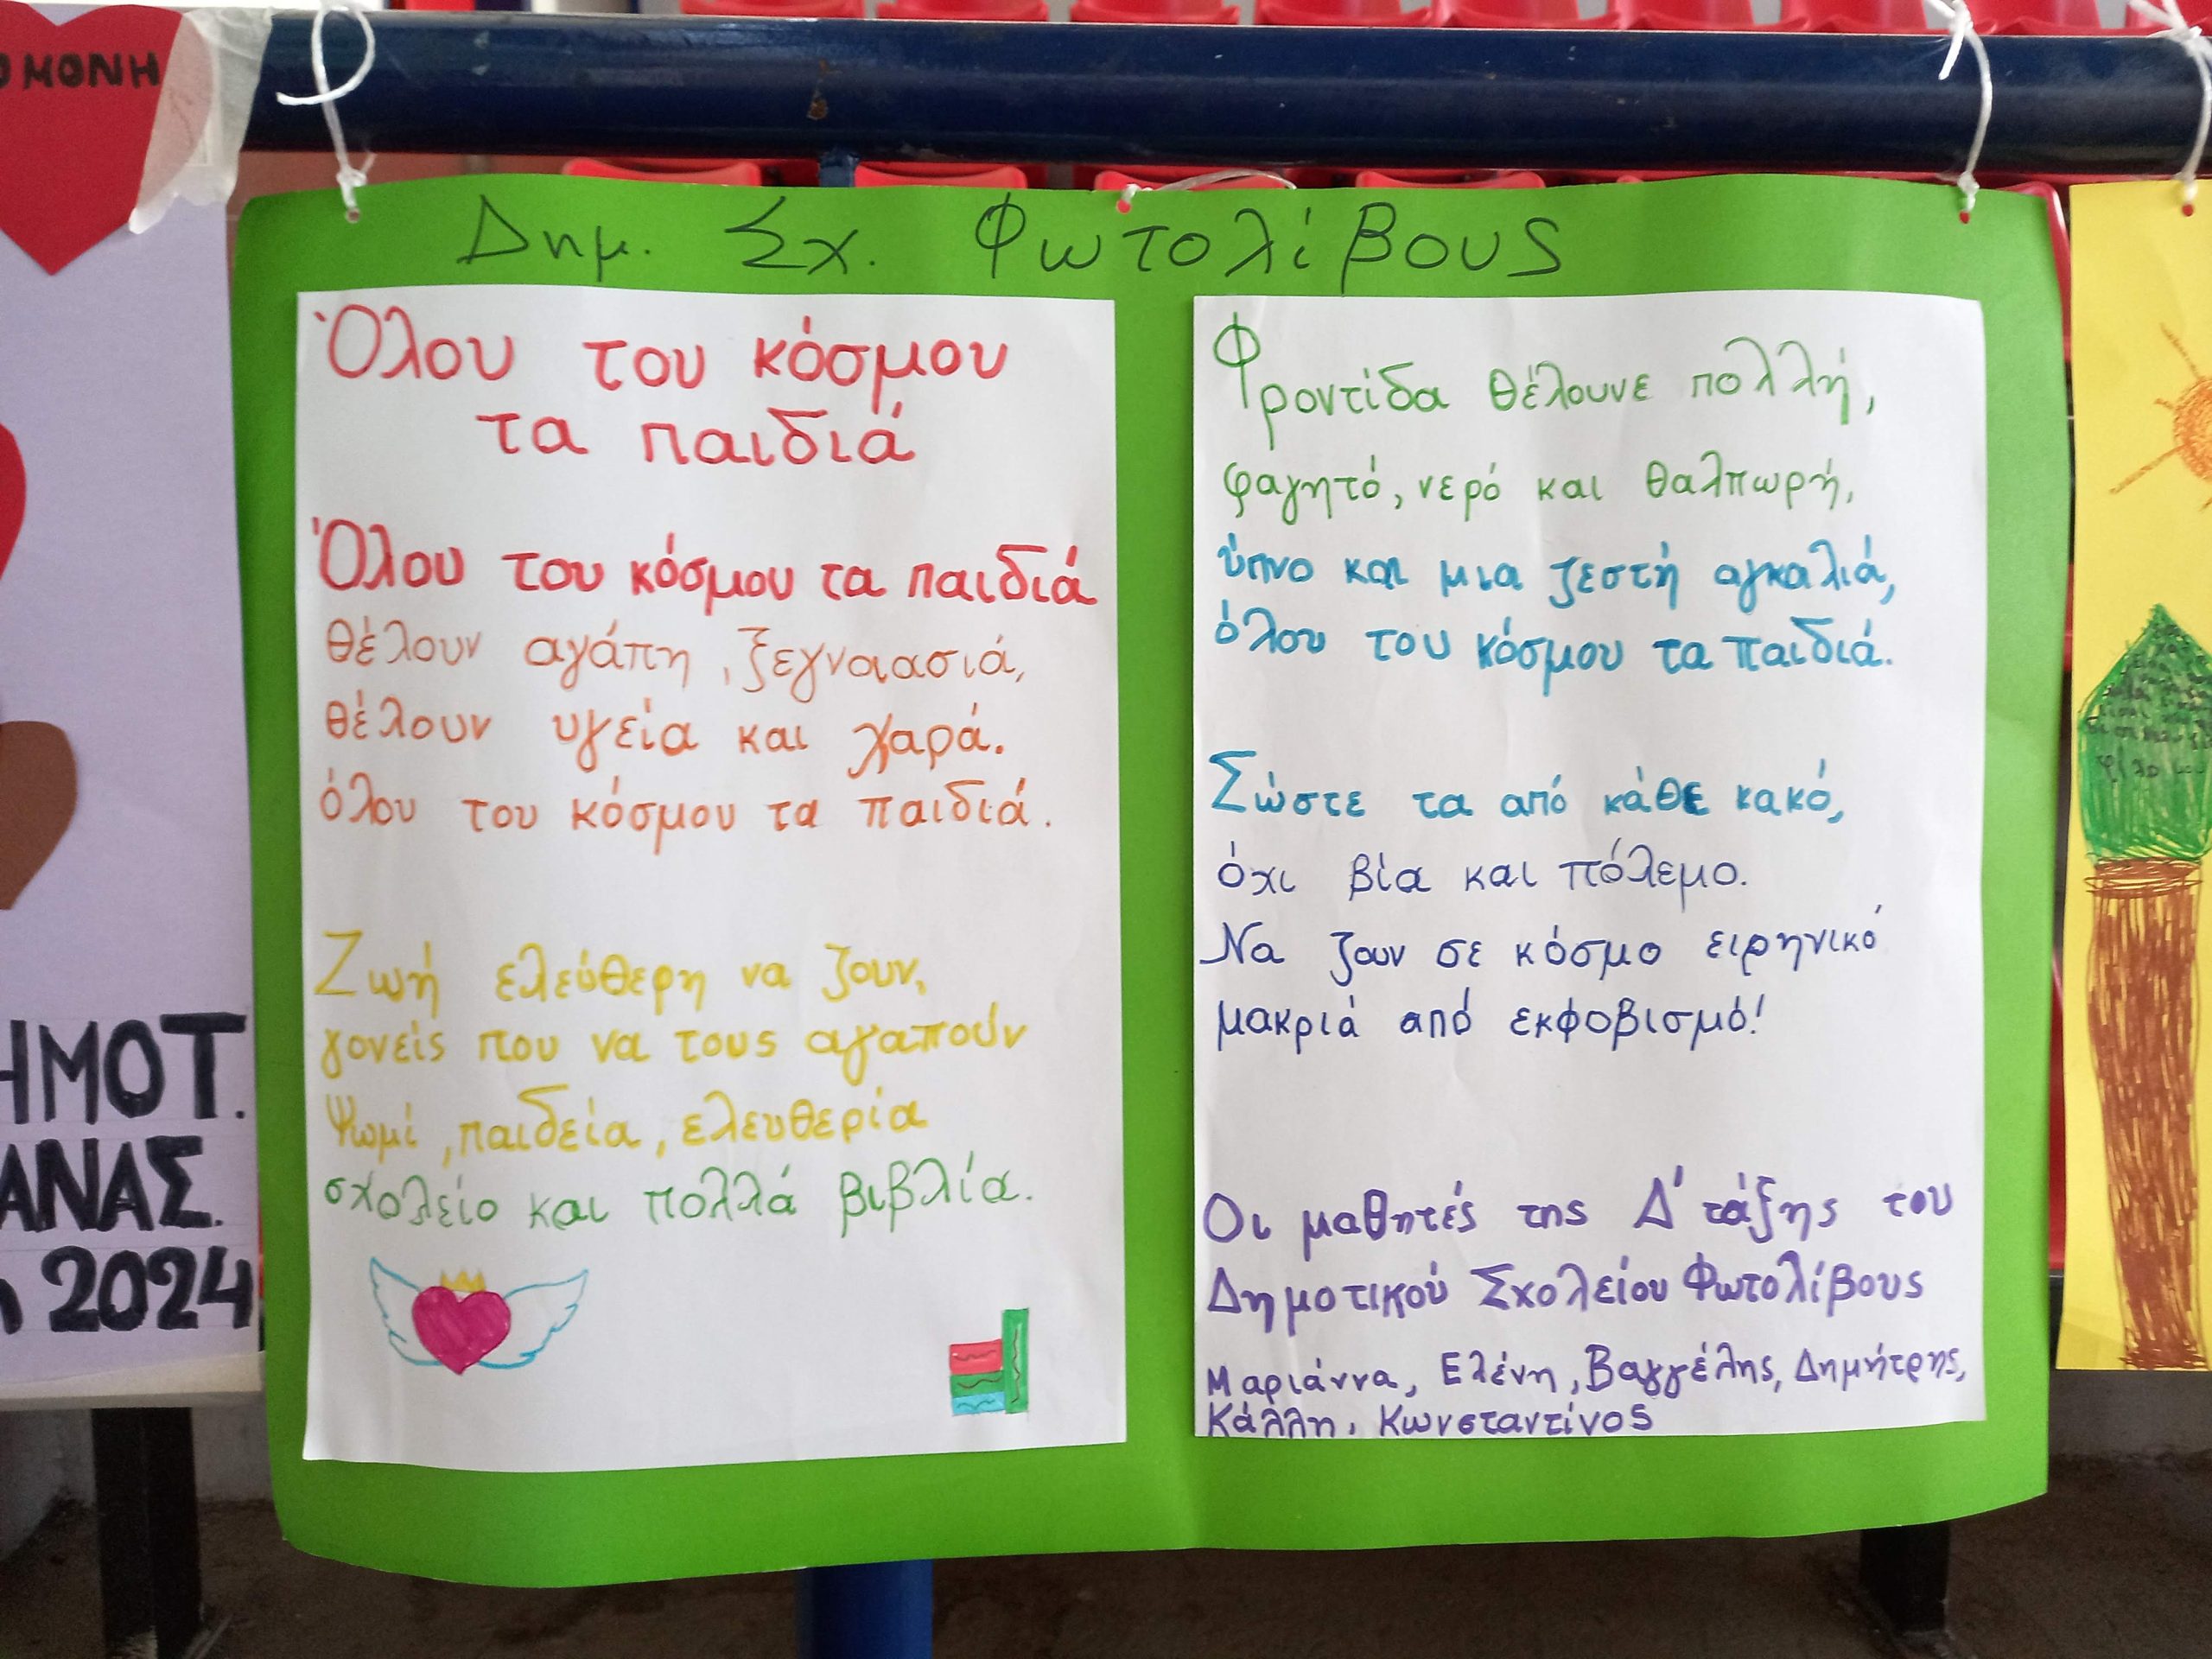 ΜΟΝΗ
ΗΜΟΤ.
ΑΝΑΣ.
2024
Δημ. Σχ. Φωτολίβους
Όλου του κόσμου
τα παιδιά
Όλου του κόσμου τα παιδιά
θέλουν αγάπη, ξεγνοιασιά,
θέλουν υγεία και χαρά.
όλου του κόσμου τα παιδιά.
Ζωή ελεύθερη να ζουν,
γονείς που να τους αγαπούν
Ψωμί, παιδεία, ελευθερία
σχολείο και πολλά βιβλία.
Φροντίδα θέλουνε πολλή,
φαγητό, νερό και θαλπωρή,
ύπνο και μια ζεστή αγκαλιά,
όλου του κόσμου τα παιδιά.
Σώστε τα από κάθε κακό,
όχι βία και πόλεμο.
Να ζουν σε κόσμο ειρηνικό
μακριά από εκφοβισμό!
Οι μαθητές της Δ' τάξης του
Δημοτικού Σχολείου Φωτολίβους
Μαριάννα, Ελένη, Βαγγέλης, Δημήτρης,
Κάλλη, Κωνσταντίνος